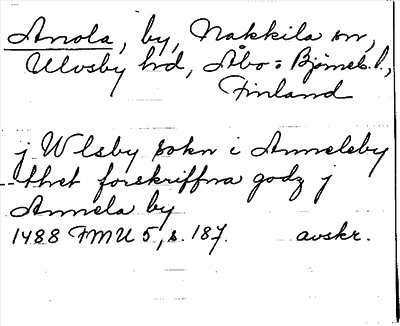 Anola, by, Nakkila sn,
Ulvsby hd, Åbo = Björneb. l.,
Finland
j Wlsby sokn i Anneleby
thet forskriffna godz j
Annela by
1488 FMU 5, s. 187. avskr.